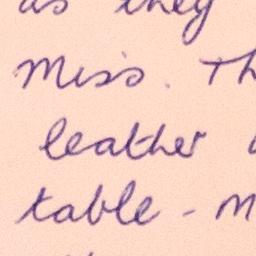 as they
Miss. Th
leather
table - M